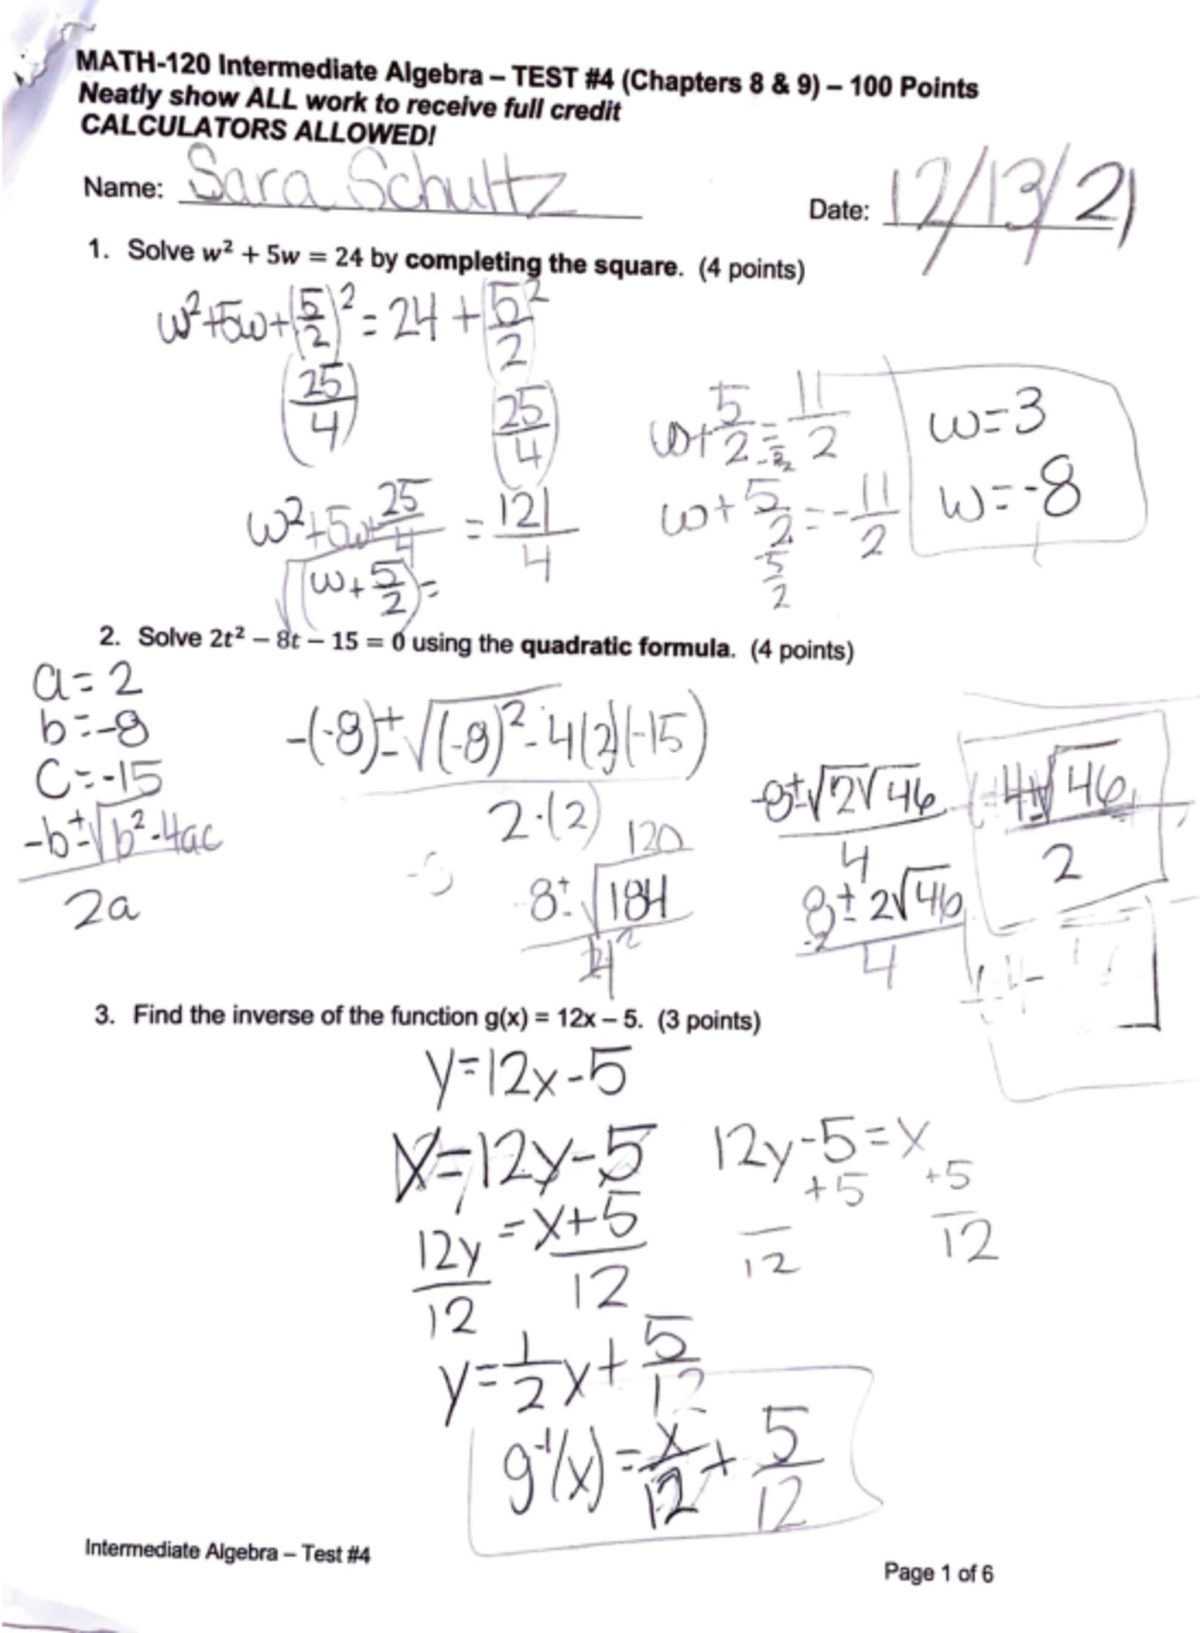 MATH-120 Intermediate Algebra – TEST #4 (Chapters 8 & 9) – 100 Points
Neatly show ALL work to receive full credit
CALCULATORS ALLOWED!
Name: Sara Schultz
Date: 12/13/21
1. Solve w² + 5w = 24 by completing the square. (4 points)
w²+5w+(5/2)² = 24 + (5/2)²
(25/4) (25/4)
w²+5w+25/4 = 121/4
√(w+5/2) =
w+5/2 = 11/2
w+5/2 = -11/2
w=3
w=-8
2. Solve 2t² – 8t – 15 = 0 using the quadratic formula. (4 points)
a=2
b=-8
c=-15
-b±√b²-4ac
2a
-(-8)±√(-8)²-4(2)(-15)
2·(2)
120
8±√184
4
-8±√2√46
4
8±2√46
4
4±√46
2
3. Find the inverse of the function g(x) = 12x – 5. (3 points)
y=12x-5
x=12y-5
12y-5=x
+5 +5
12 12
12y = x+5
12 12
y=1/2x+5/12
g⁻¹(x)=x/12+5/12
Intermediate Algebra – Test #4
Page 1 of 6